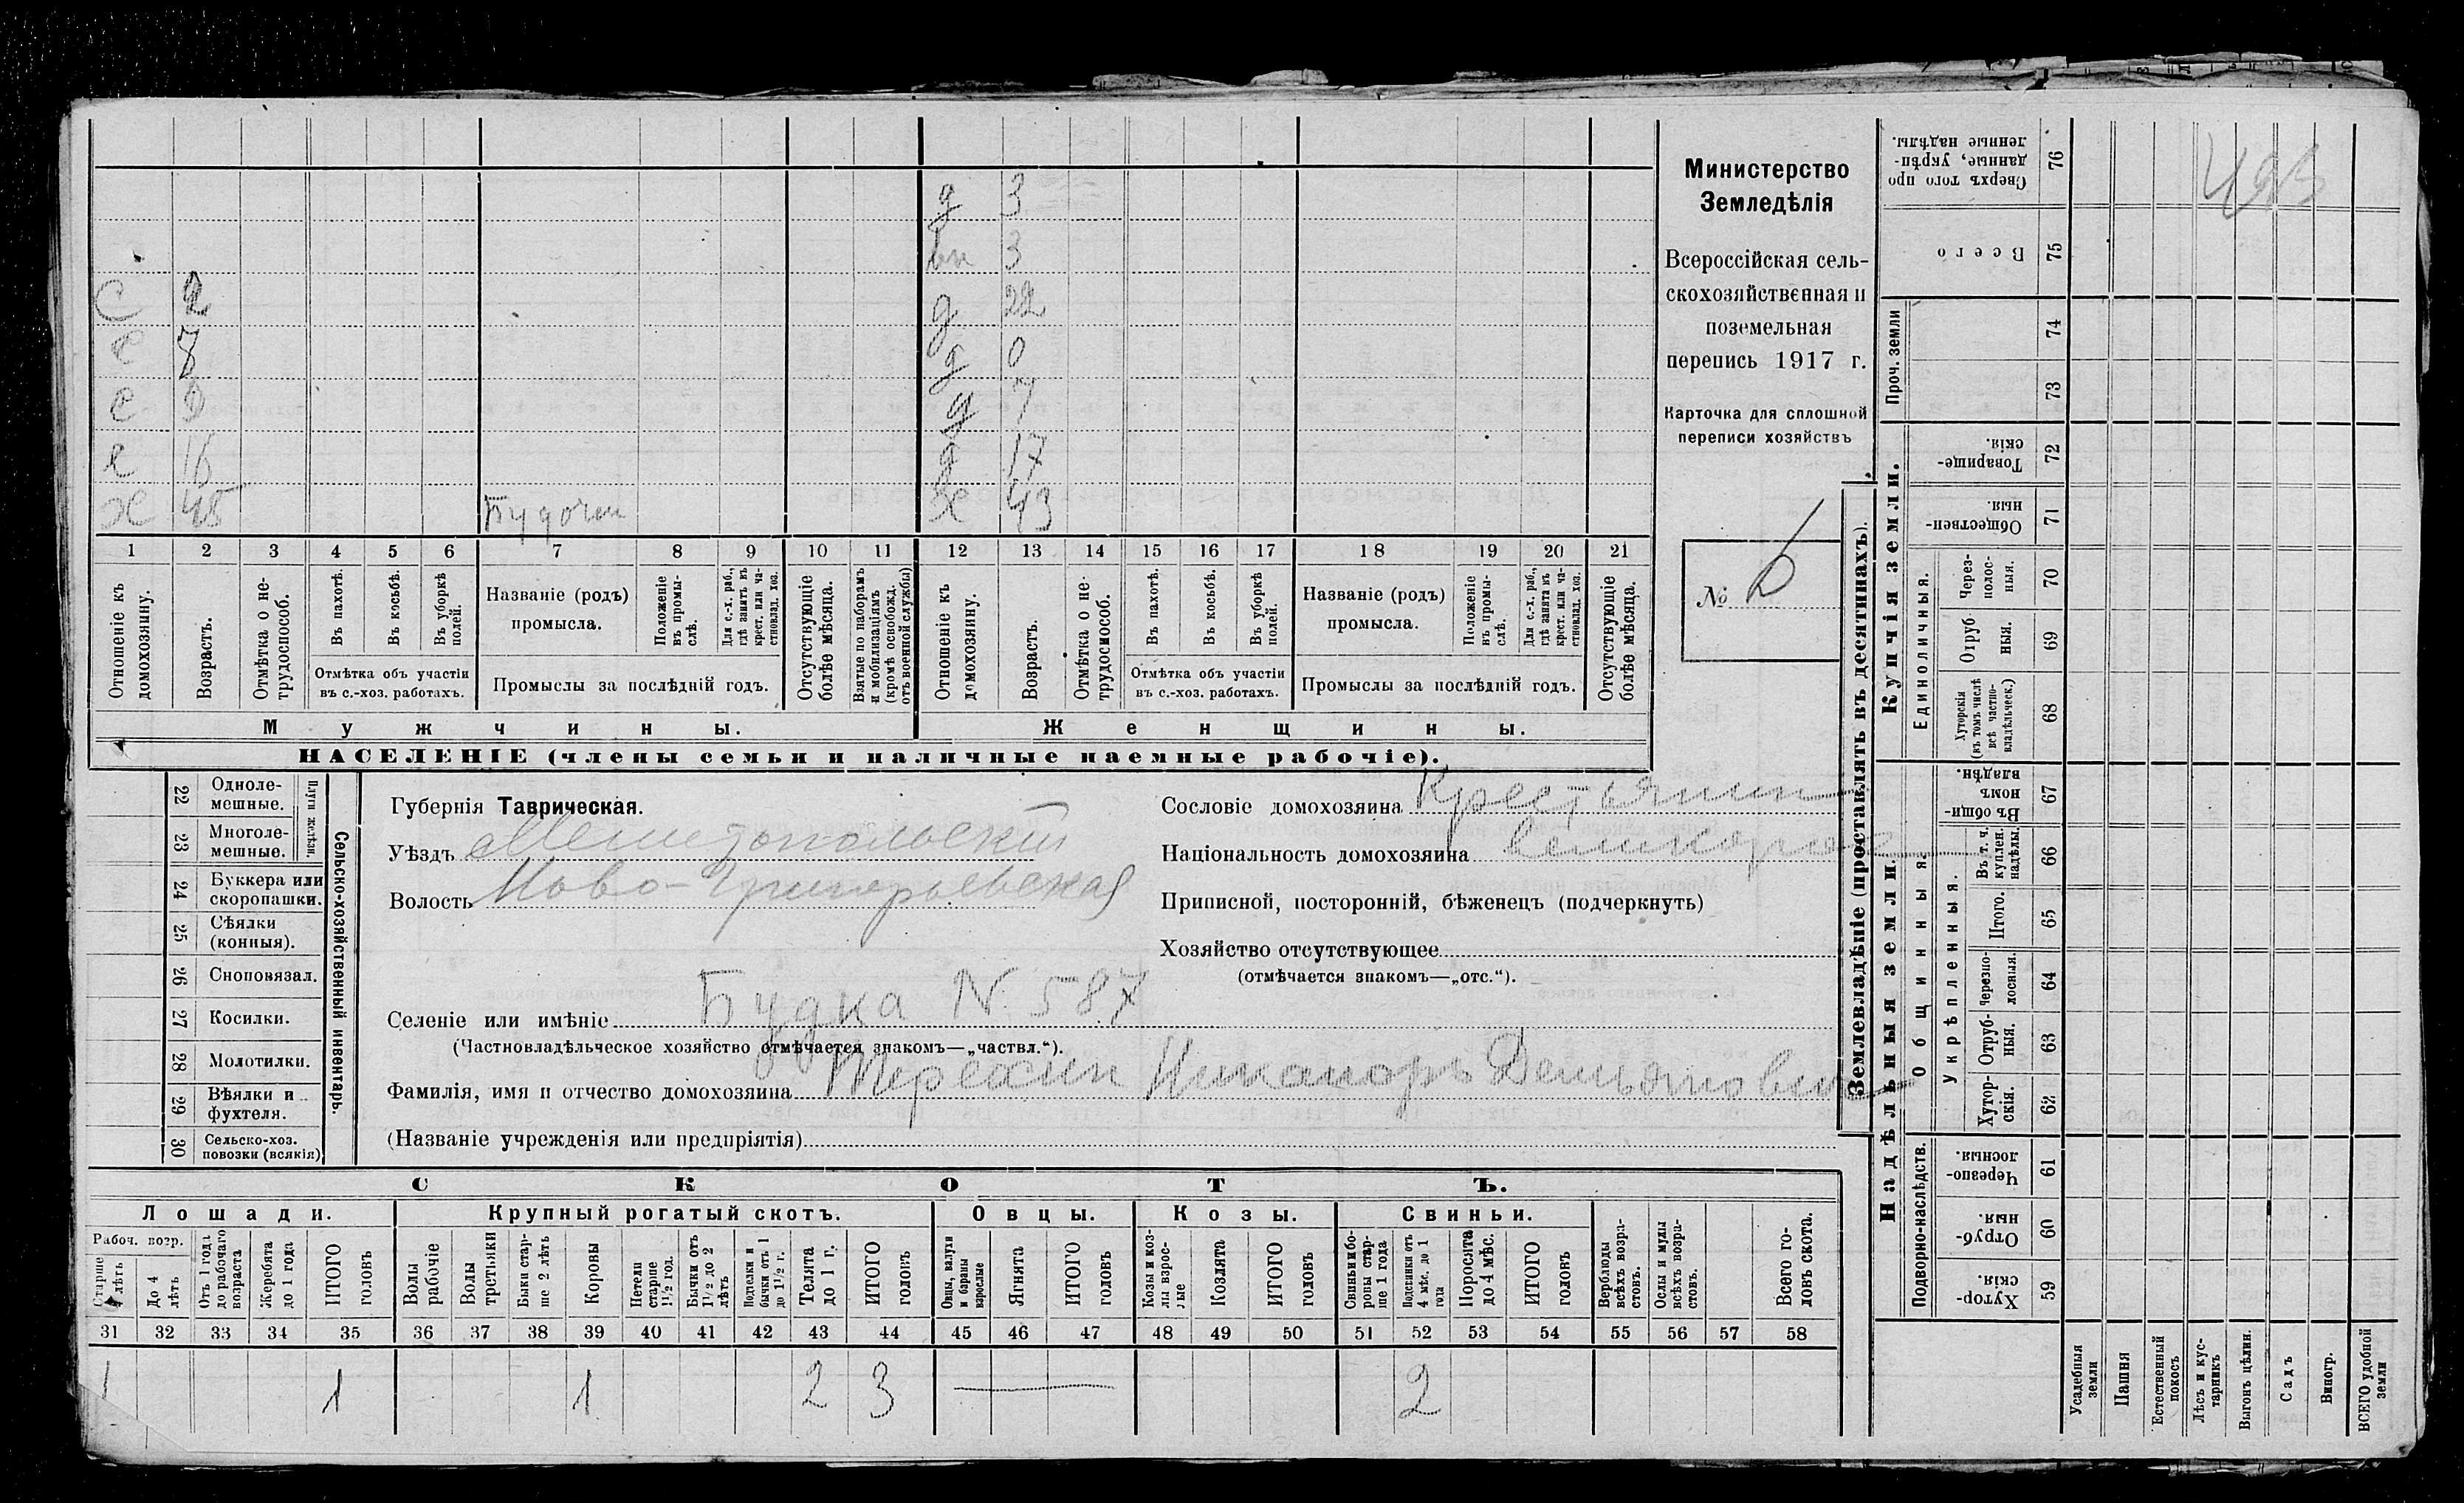 д 3
вн 3
С 2 д 22
С 7 д 0
С 9 д 7
С 16 д 17
Х 45 Будочн Ж 43
1 2 3 4 5 6 7 8 9 10 11 12 13 14 15 16 17 18 19 20 21
Отношеніе къ домохозяину.
Возрастъ.
Отмѣтка о нетрудоспособ.
Въ пахотѣ.
Въ косьбѣ.
Въ уборкѣ полей.
Отмѣтка объ участіи въ с.-хоз. работахъ.
Названіе (родъ) промысла.
Положеніе въ промыслѣ.
Для с.-х. раб., гдѣ занятъ въ крест. или частновлад. хоз.
Промыслы за послѣдній годъ.
Отсутствующіе болѣе мѣсяца.
Взятые по наборамъ и мобилизаціямъ (кромѣ освобожд. отъ военной службы)
Отношеніе къ домохозяину.
Возрастъ.
Отмѣтка о нетрудоспособ.
Въ пахотѣ.
Въ косьбѣ.
Въ уборкѣ полей.
Отмѣтка объ участіи въ с.-хоз. работахъ.
Названіе (родъ) промысла.
Положеніе въ промыслѣ.
Для с.-х. раб., гдѣ занята въ крест. или частновлад. хоз.
Промыслы за послѣдній годъ.
Отсутствующіе болѣе мѣсяца.
Мужчины. Женщины.
НАСЕЛЕНІЕ (члены семьи и наличные наемные рабочіе).
Министерство
Земледѣлія
Всероссійская сель-
скохозяйственная и
поземельная
перепись 1917 г.
Карточка для сплошной
переписи хозяйствъ
№ 6
Сельско-хозяйственный инвентарь.
Плуги желѣзн.
22 Однолемешные.
23 Многолемешные.
24 Буккера или скоропашки.
25 Сѣялки (конныя).
26 Сноповязал.
27 Косилки.
28 Молотилки.
29 Вѣялки и фухтеля.
30 Сельско-хоз. повозки (всякія)
Губернія Таврическая.
Уѣздъ Мелитопольскій
Волость Ново-Григорьевская
Сословіе домохозяина Крестьянин
Національность домохозяина великорос
Приписной, посторонній, бѣженецъ (подчеркнуть)
Хозяйство отсутствующее
(отмѣчается знакомъ—„отс.“).
Селеніе или имѣніе Будка N. 587
(Частновладѣльческое хозяйство отмѣчается знакомъ—„частвл.“).
Фамилія, имя и отчество домохозяина Терехин Никаноръ Демьянович
(Названіе учрежденія или предпріятія)
СКОТЪ.
Лошади. Крупный рогатый скотъ. Овцы. Козы. Свиньи.
Рабоч. возр.
Старше 4 лѣтъ
До 4 лѣтъ
Отъ 1 года до рабочаго возраста
Жеребята до 1 года
ИТОГО головъ
Волы рабочіе
Волы третьяки
Быки старше 2 лѣтъ
Коровы
Нетели старше 1½ год.
Бычки отъ 1½ до 2 лѣтъ
Подтелки и бычки отъ 1 до 1½ г.
Телята до 1 г.
ИТОГО головъ
Овцы, валухи и бараны взрослые
Ягнята
ИТОГО головъ
Козы и козлы взрослые
Козлята
ИТОГО головъ
Свиньи и боровы старше 1 года
Подсвинки отъ 4 мѣс. до 1 года
Поросята до 4 мѣс.
ИТОГО головъ
Верблюды всѣхъ возрастовъ.
Ослы и мулы всѣхъ возрастовъ.
Всего головъ скота.
31 32 33 34 35 36 37 38 39 40 41 42 43 44 45 46 47 48 49 50 51 52 53 54 55 56 57 58
1 1 1 2 3 — 2
Землевладѣніе (проставлять въ десятинахъ).
Купчія земли.
Надѣльныя земли.
Проч. земли
Единоличныя.
Общинныя.
Укрѣпленныя.
Подворно-наслѣдств.
Сверхъ того проданные, укрѣпленные надѣлы. 76
Всего 75
74
73
Товарищескія. 72
Общественныя 71
Черезполосныя. 70
Отрубныя. 69
Хуторскія (въ томъ числѣ всѣ частновладѣльческ.) 68
Въ общинномъ владѣн. 67
Въ т. ч. куплен. надѣлы. 66
Итого. 65
Черезполосныя. 64
Отрубныя. 63
Хуторскія. 62
Черезполосныя. 61
Отрубныя. 60
Хуторскія. 59
Усадебныя земли
Пашня
Естественный покосъ
Лѣсъ и кустарникъ
Выгонъ цѣлин.
Садъ
Виногр.
ВСЕГО удобной земли